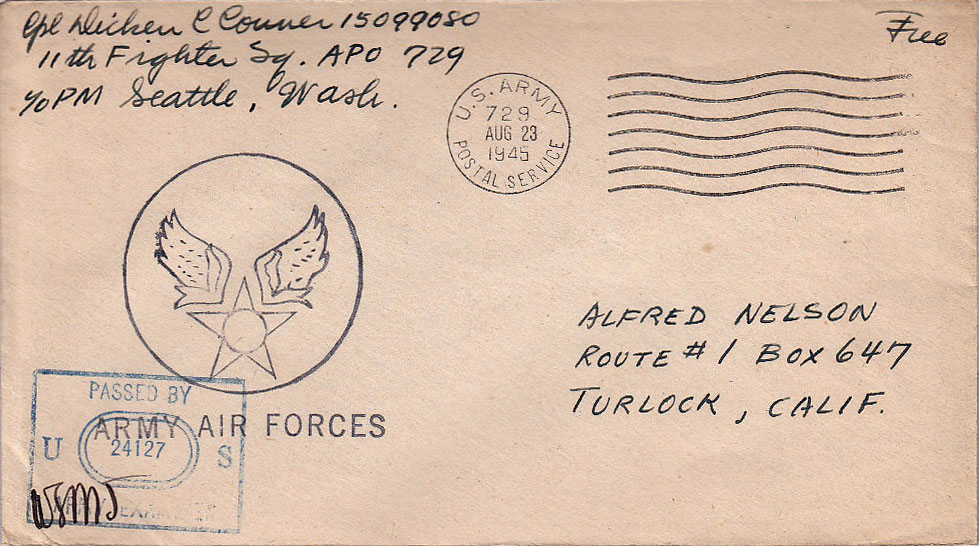 Cpl Dicken C Conner 15099080
11th Fighter Sq. APO 729
℅ PM Seattle, Wash.
Free
U.S. ARMY
729
AUG 23
1945
POSTAL SERVICE
ALFRED NELSON
ROUTE #1 BOX 647
TURLOCK, CALIF.
ARMY AIR FORCES
PASSED BY
U 24127 S
ARMY EXAMINER